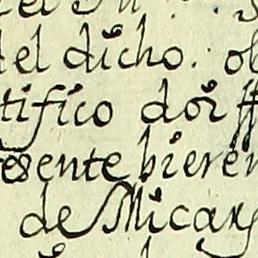 del dicho. ob
tifico doi ff
esente bieren
de Micar